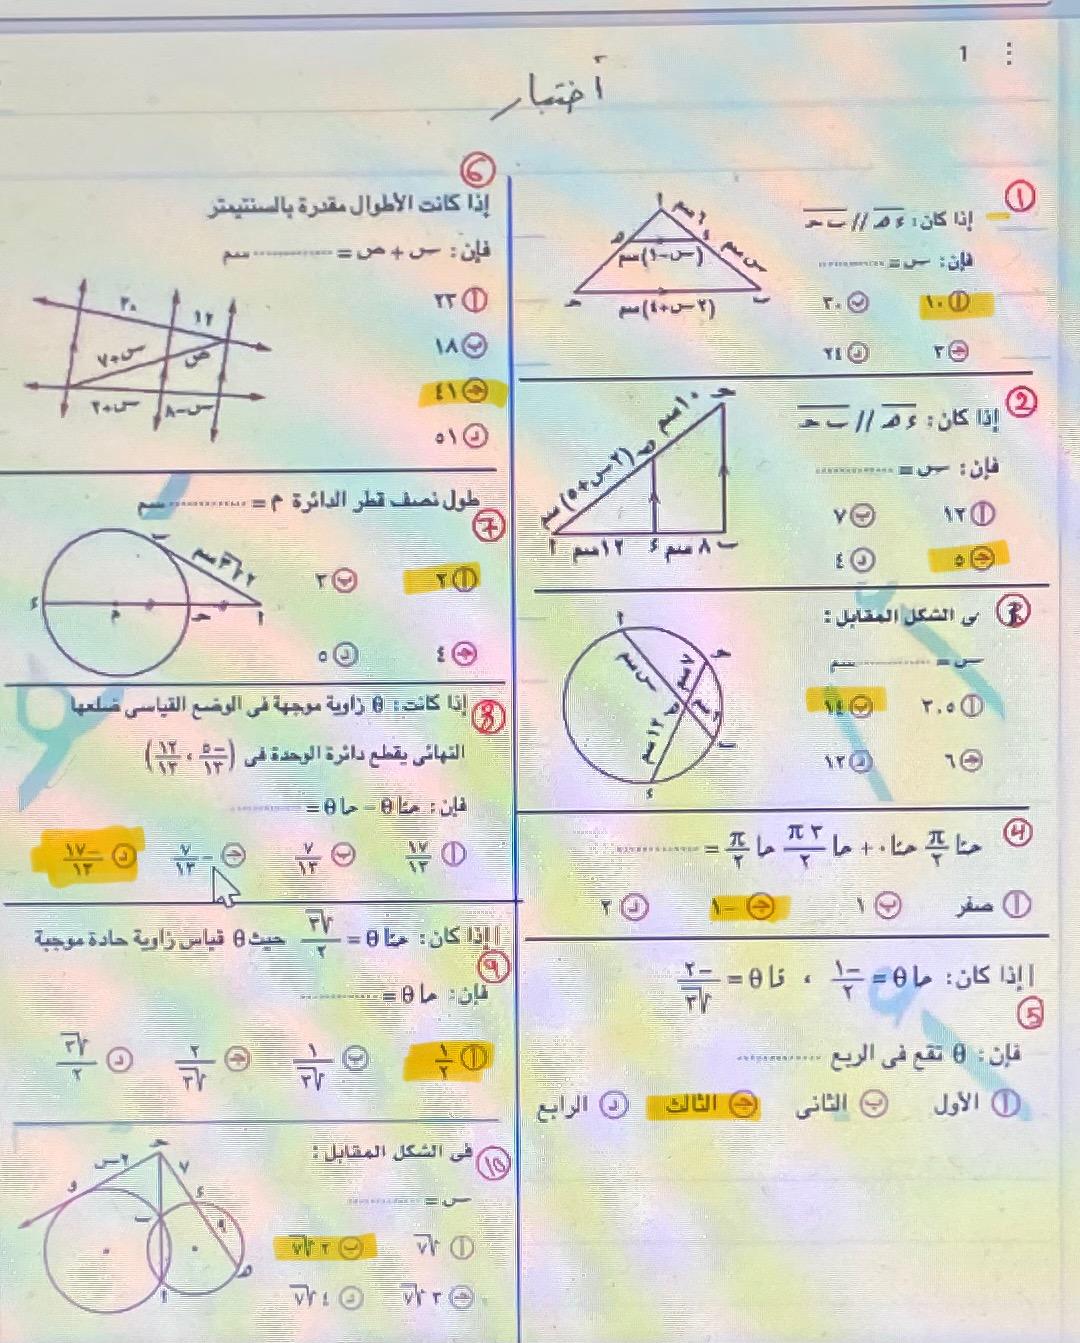 1
أختبار
①
إذا كان: د هـ // ب حـ
فإن: س = ............
أ ١٠
ب ٢٠
جـ ٣
د ٢٤
أ
٦ سم
د
هـ
س سم
(س-١) سم
حـ
ب
(٢س+٤) سم
②
إذا كان: د هـ // ب حـ
فإن: س = ............
أ ١٢
ب ٧
جـ ٥
د ٤
حـ
١٠ سم
هـ
(٢س+٥) سم
أ
١٢ سم
د
٨ سم
ب
فى الشكل المقابل:
س = ............ سم
أ ٣.٥
ب ١٤
جـ ٦
د ١٢
أ
حـ
س سم
٧ سم
هـ
٦ سم
١٢ سم
ب
د
④
حتا π/٢ حتا ٠ + حا ٣π/٢ حا π/٢ = ............
أ صفر
ب ١
جـ -١
د ٢
إذا كان: حا θ = -١/٢ ، قا θ = -٢/√٣
⑤
فإن: θ تقع فى الربع ............
أ الأول
ب الثانى
جـ الثالث
د الرابع
⑥
إذا كانت الأطوال مقدرة بالسنتيمتر
فإن: س + ص = ............ سم
أ ٢٣
ب ١٨
جـ ٤١
د ٥١
٢٠
١٢
س+٧
ص
س+٢
س-٨
طول نصف قطر الدائرة م = ............ سم
⑦
أ ٢
ب ٣
جـ ٤
د ٥
ب
٢√٣ سم
د
م
حـ
أ
⑧
إذا كانت: θ زاوية موجهة فى الوضع القياسى ضلعها
النهائى يقطع دائرة الوحدة فى (-٥/١٣ ، ١٢/١٣)
فإن: حتا θ - حا θ = ............
أ ١٧/١٣
ب ٧/١٣
جـ -٧/١٣
د -١٧/١٣
إذا كان: حتا θ = √٣/٢ حيث θ قياس زاوية حادة موجبة
⑨
فإن: حا θ = ............
أ ١/٢
ب ١/√٣
جـ ٢/√٣
د √٣/٢
⑩
فى الشكل المقابل:
س = ............
أ √٧
ب ٢√٧
جـ ٣√٧
د ٤√٧
حـ
٢س
٧
و
د
ب
٩
هـ
أ